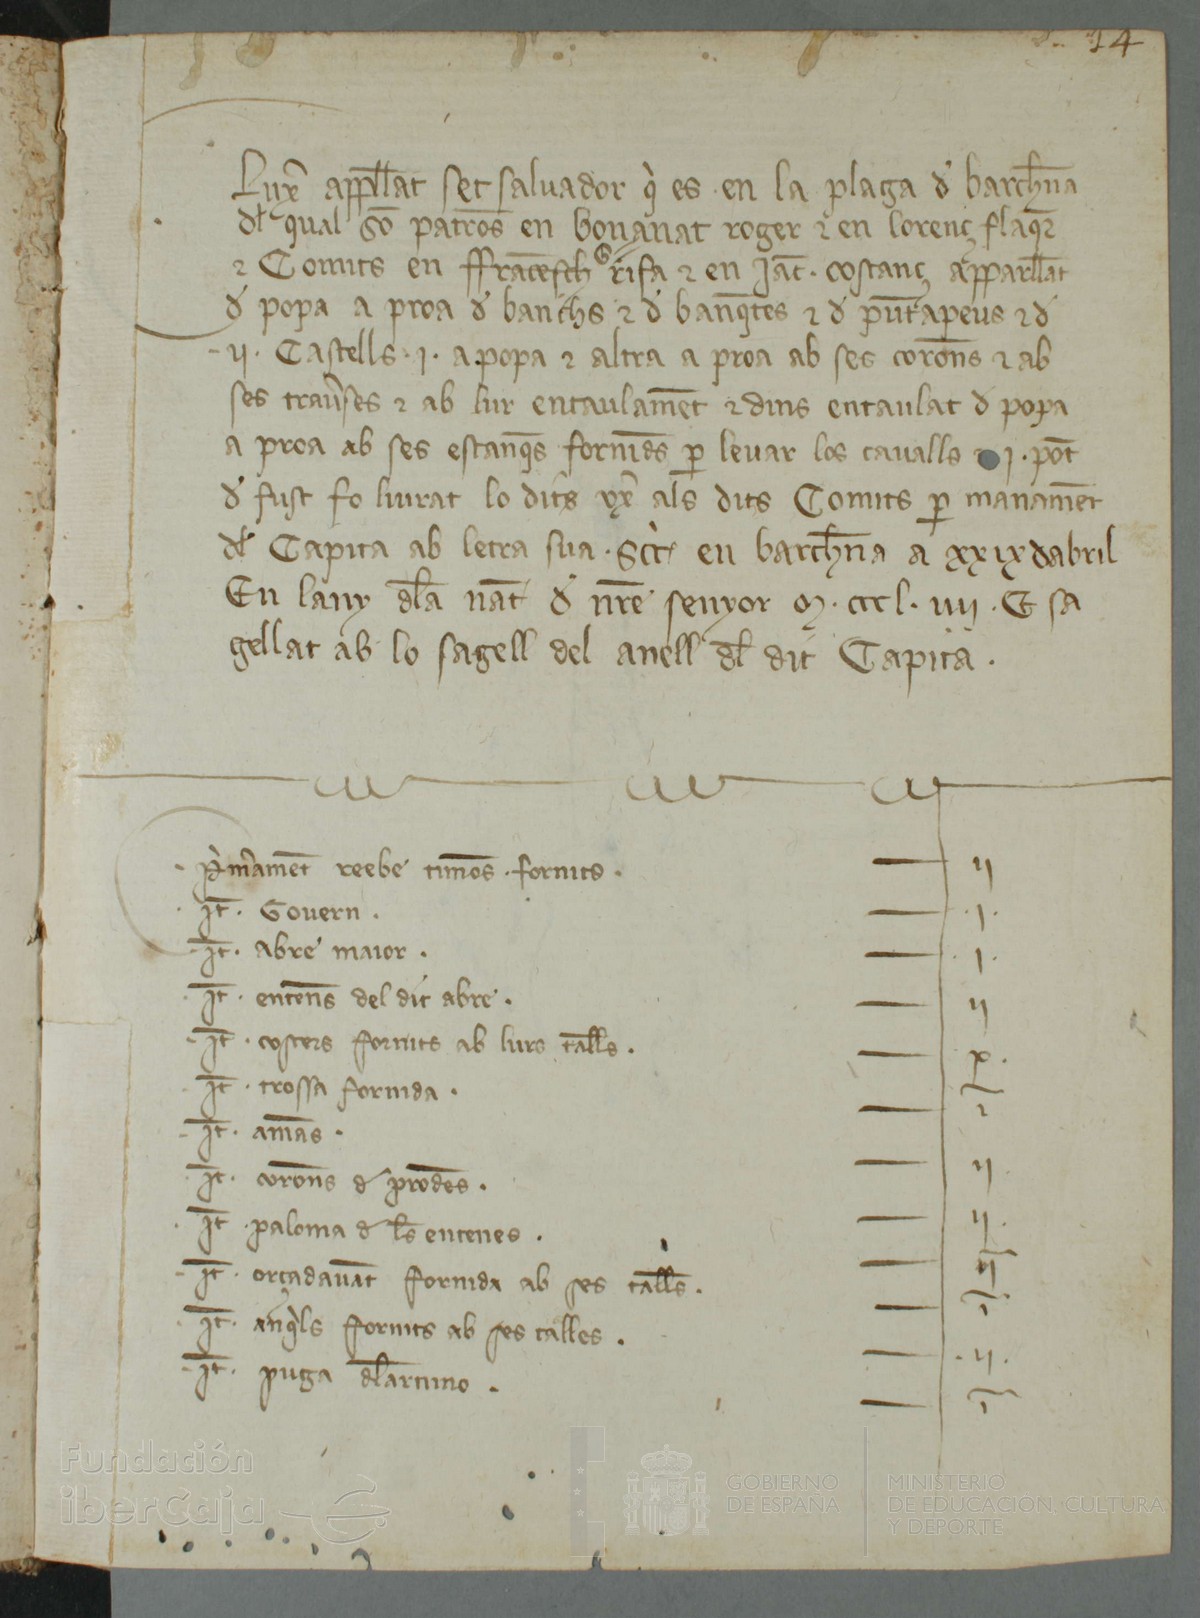 14
Luxer appellat set salvador q̀ es en la plaga d̓ barchn̄a
dl̓ qual sō patrōs en bonanat roger ⁊ en lorenç flaq̄r
⁊ Comits en ffrācesch rifa ⁊ en Jac̄. costanç apparellat
d̓ popa a proa d̓ banchs ⁊ d̓ banq̄tes ⁊ d̓ pūtapeus ⁊ d̓
.ij. Castells .j. a popa ⁊ altra a proa ab ses corōns ⁊ ab
ses trav̄ses ⁊ ab lur entaulamēt ⁊ dins entaulat d̓ popa
a proa ab ses estanq̄s fornid̄s ꝑ levar los cavalls ⁊ .j. pōt
d̓ fust fo liurat lo dit ux̄ als dits Comits ꝑ manamēt
dl̓ Capita ab letra sua. Sc̄r̄ en barchn̄a a xxix dabril
En lany dl̄a nat̄ d̓ nr̄e senyor M. ccc l. iiij. E sa
gellat ab lo sagell del anell dl̄ dit Capita.
P̀mamēt reebe timōs fornits. ij
It̄. Govern. .j.
It̄. abre maior. .j.
It̄. entēns del dit abre. ij
It̄. costers fornits ab lurs talls. x.
It̄. trossa fornida. j
It̄. amās. ij
It̄. corōns d̓ prod̄es. ij.
It̄. paloma d̓ ls̄ entenes. ij
It̄. orçadavāt fornida ab ses talls. j
It̄. anq̀ls fornits ab ses talles. .ij.
It̄. puga dl̄artimo. j
Fundación
iberCaja
GOBIERNO
DE ESPAÑA
MINISTERIO
DE EDUCACIÓN, CULTURA
Y DEPORTE